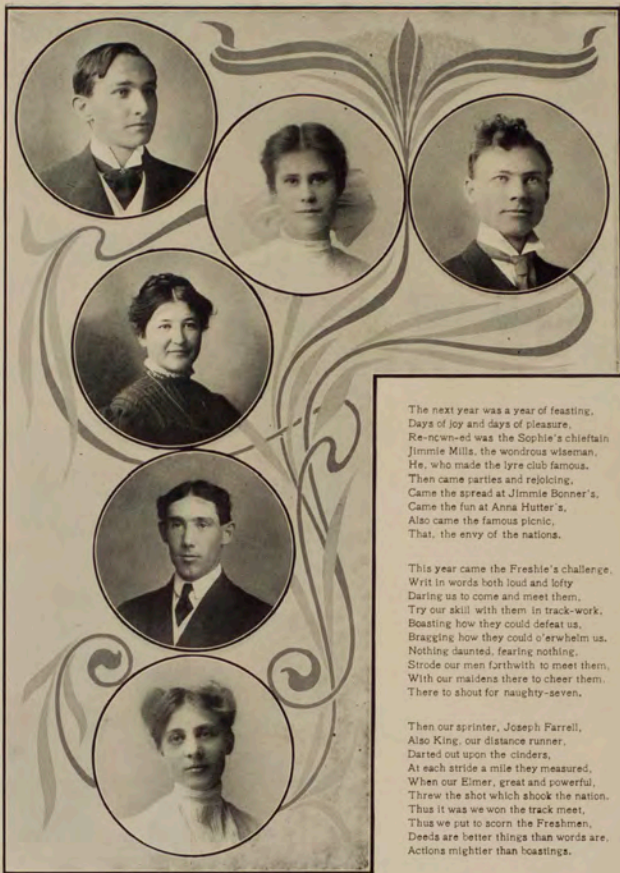 The next year was a year of feasting,
Days of joy and days of pleasure,
Re-nown-ed was the Sophie's chieftain
Jimmie Mills, the wondrous wiseman,
He, who made the lyre club famous.
Then came parties and rejoicing,
Came the spread at Jimmie Bonner's,
Came the fun at Anna Hutter's,
Also came the famous picnic,
That, the envy of the nations.

This year came the Freshie's challenge,
Writ in words both loud and lofty
Daring us to come and meet them,
Try our skill with them in track-work,
Boasting how they could defeat us,
Bragging how they could o'erwhelm us.
Nothing daunted, fearing nothing,
Strode our men forthwith to meet them,
With our maidens there to cheer them.
There to shout for naughty-seven.

Then our sprinter, Joseph Farrell,
Also King, our distance runner,
Darted out upon the cinders,
At each stride a mile they measured,
When our Elmer, great and powerful,
Threw the shot which shook the nation.
Thus it was we won the track meet,
Thus we put to scorn the Freshmen,
Deeds are better things than words are,
Actions mightier than boastings.